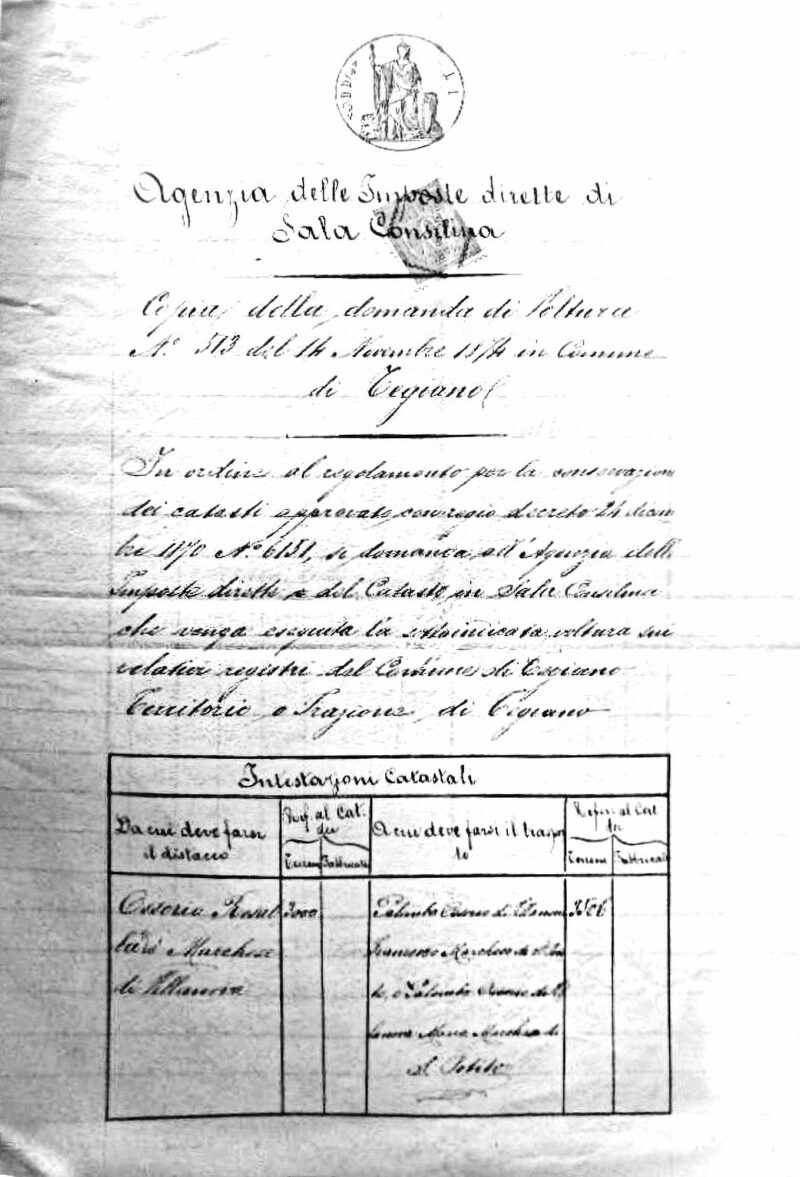 Agenzia delle Imposte dirette di
Sala Consilina
Copia della domanda di Voltura
N.° 513 del 14 Novembre 1874 in Comune
di Tegiano
In ordine al regolamento per la conservazione
dei catasti approvato con regio decreto 24 dicem
bre 1870 N.° 6151, si domanda all'Agenzia delle
Imposte dirette e del Catasto in Sala Consilina
che venga eseguita la sottoindicata voltura sui
relativi registri del Comune di Tegiano
Territorio o Frazione di Tegiano
Intestazioni Catastali
Da cui deve farsi
il distacco
Rif. al Cat.
dei
Terreni
Fabbricati
A cui deve farsi il traspor
to
Rifer. al Cat
dei
Terreni
Fabbricati
Ossorio
Marchese
di Villanova
3000
Francesco Marchese di
Maria Marchesa di
3506